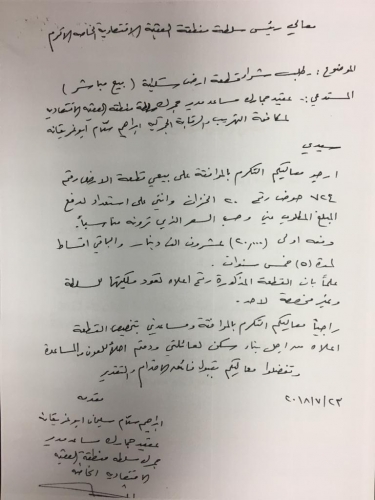 معالي رئيس سلطة منطقة العقبة الاقتصادية الخاصة الأكرم
الموضوع: طلب شراء قطعة ارض سكنية (بيع مباشر)
المستدعي: عقيد جمارك مساعد مدير جمرك منطقة العقبة الاقتصادية
لمكافحة التهريب والرقابة الجمركية ابراهيم سلام ابو غريقانه
سيدي
ارجو معاليكم التكرم بالموافقة على بيعي قطعة الارض رقم
٧٢٤ حوض رقم ٢٠ الخزان وانني على استعداد لدفع
المبلغ المطلوب مني وحسب السعر الذي ترونه مناسباً.
دفعة اولى (٢٠,٠٠٠) عشرون الف دينار والباقي اقساط
لمدة (٥) خمس سنوات.
علماً بان القطعة المذكورة رقم اعلاه تعود ملكيتها للسلطة
وغير مخصصة لاحد.
راجياً معاليكم التكرم بالموافقة ومساعدتي بتخصيص القطعة
اعلاه من اجل بناء سكن لعائلتي ودمتم اهلاً للعون والمساعدة
وتفضلوا معاليكم بقبول فائق الاحترام والتقدير
٢٠١٨/٧/٢٣
مقدمه
ابراهيم سلام سليمان ابو غريقانه
عقيد جمارك مساعد مدير
جمرك سلطة منطقة العقبة
الاقتصادية الخاصة